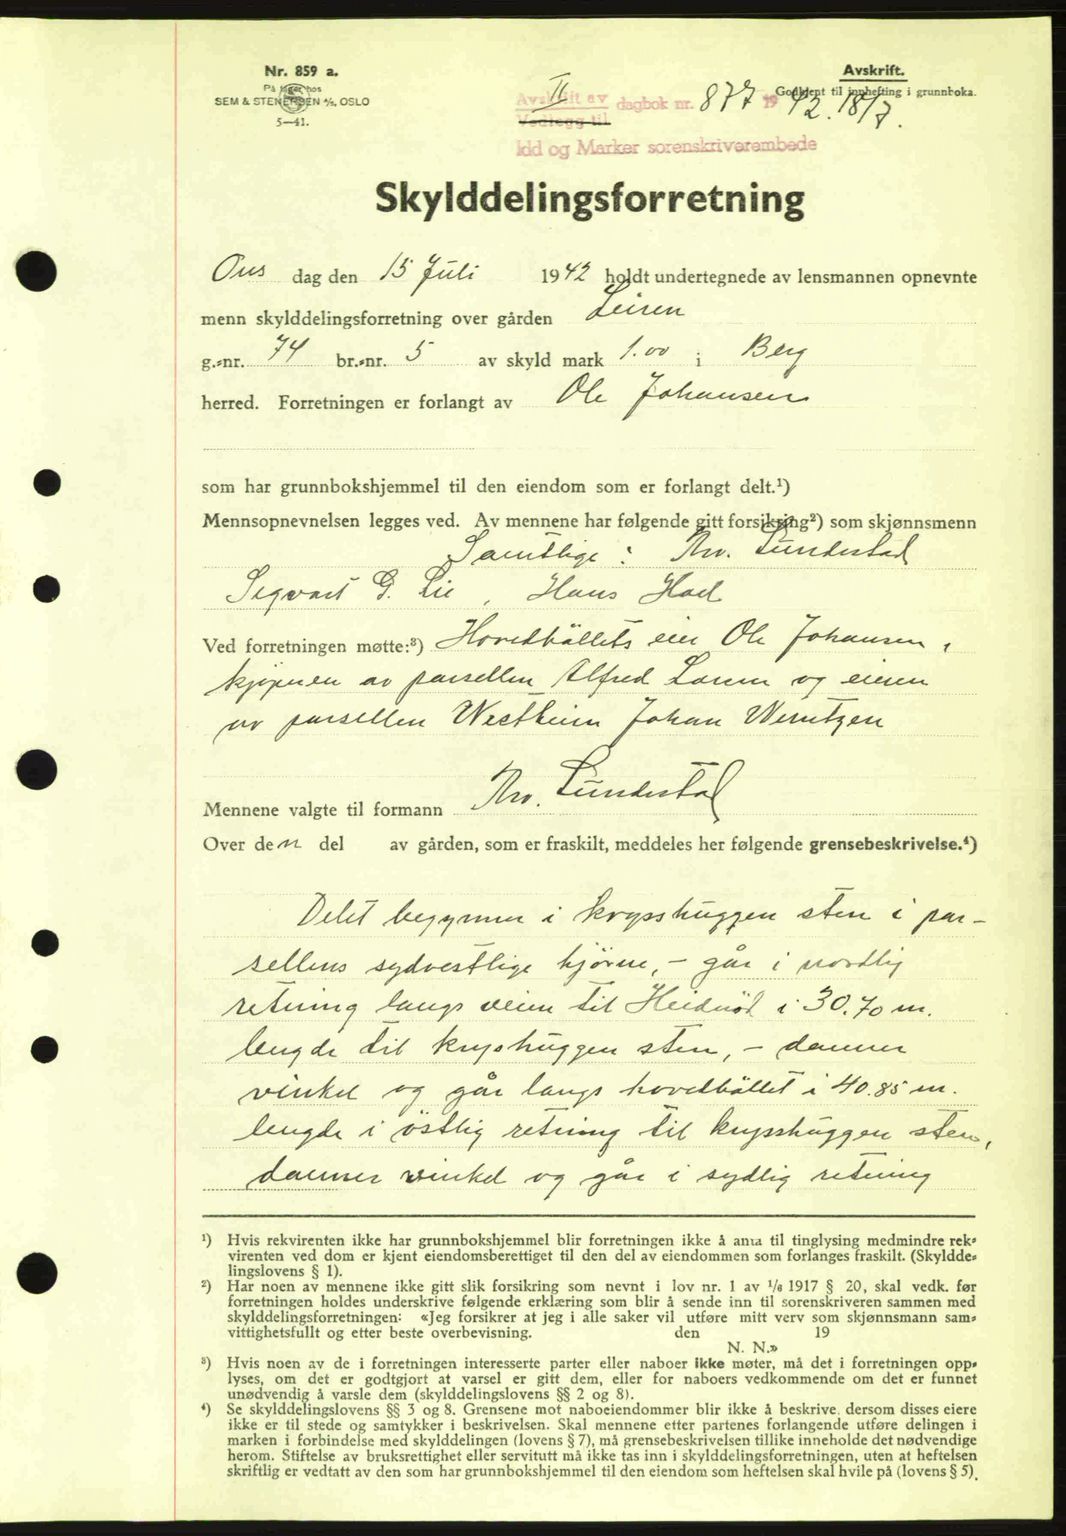 Nr. 859 a.
På lager hos
SEM & STENERSEN A/S, OSLO
5—41.
Avskrift.
Godkjent til innhefting i grunnboka.
II
Avskrift av dagbok nr. 877 1942. 18/7.
Vedlegg til
Idd og Marker sorenskriverembede
Skylddelingsforretning
Ons dag den 15 Juli 1942 holdt undertegnede av lensmannen opnevnte
menn skylddelingsforretning over gården Leiren
g.-nr. 74 br.-nr. 5 av skyld mark 1.00 i Berg
herred. Forretningen er forlangt av Ole Johansen
som har grunnbokshjemmel til den eiendom som er forlangt delt.¹)
Mennsopnevnelsen legges ved. Av mennene har følgende gitt forsikring²) som skjønnsmenn
Samtlige: Arv. Lundestad
Sigvart G. Lie, Hans Hoel
Ved forretningen møtte:³) Hovedbøllets eier Ole Johansen,
kjøperen av parsellen Alfred Larsen og eieren
av parsellen Westheim Johan Werntzen
Mennene valgte til formann Arv. Lundestad
Over den del av gården, som er fraskilt, meddeles her følgende grensebeskrivelse.⁴)
Delet begynner i krysshuggen sten i par-
sellens sydvestlige hjörne, - går i nordlig
retning langs veien til i 30.70 m.
lengde til kryshuggen sten, - danner
vinkel og går langs hovedböllet i 40.85 m.
lengde i östlig retning til krysshuggen sten,
danner vinkel og går i sydlig retning
¹) Hvis rekvirenten ikke har grunnbokshjemmel blir forretningen ikke å anta til tinglysing medmindre rek-
virenten ved dom er kjent eiendomsberettiget til den del av eiendommen som forlanges fraskilt. (Skyldde-
lingslovens § 1).
²) Har noen av mennene ikke gitt slik forsikring som nevnt i lov nr. 1 av ¹/₆ 1917 § 20, skal vedk. før
forretningen holdes underskrive følgende erklæring som blir å sende inn til sorenskriveren sammen med
skylddelingsforretningen: «Jeg forsikrer at jeg i alle saker vil utføre mitt verv som skjønnsmann sam-
vittighetsfullt og etter beste overbevisning. den 19
N. N.»
³) Hvis noen av de i forretningen interesserte parter eller naboer ikke møter, må det i forretningen opp-
lyses, om det er godtgjort at varsel er gitt dem, eller for naboers vedkommende om det er funnet
unødvendig å varsle dem (skylddelingslovens §§ 2 og 8).
⁴) Se skylddelingslovens §§ 3 og 8. Grensene mot naboeiendommer blir ikke å beskrive, dersom disses eiere
ikke er til stede og samtykker i beskrivelsen. Skal mennene etter partenes forlangende utføre delingen i
marken i forbindelse med skylddelingen (lovens § 7), må grensebeskrivelsen tillike inneholde det nødvendige
herom. Stiftelse av bruksrettighet eller servitutt må ikke tas inn i skylddelingsforretningen, uten at heftelsen
skriftlig er vedtatt av den som har grunnbokshjemmel til den eiendom som heftelsen skal hvile på (lovens § 5).